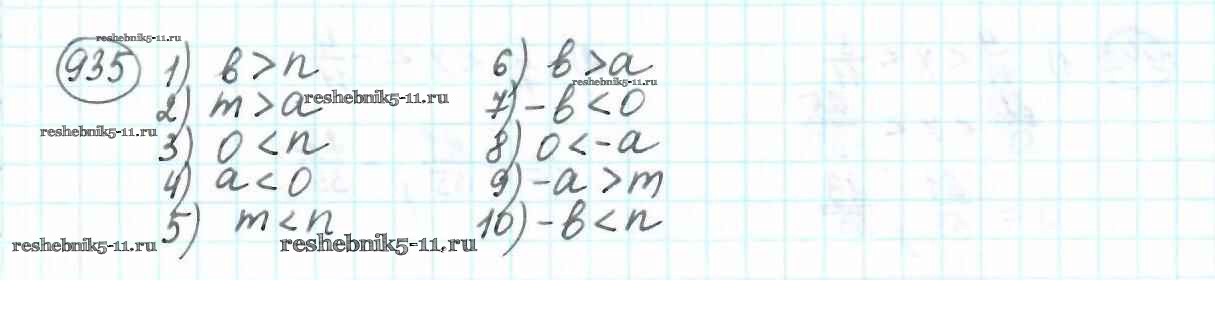 reshebnik5-11.ru
935 1) в > n
2) m > a
reshebnik5-11.ru
reshebnik5-11.ru
3) 0 < n
4) a < 0
5) m < n
reshebnik5-11.ru
reshebnik5-11.ru
6) в > a
reshebnik5-11.ru
7) -в < 0
8) 0 < -a
9) -a > m
10) -в < n